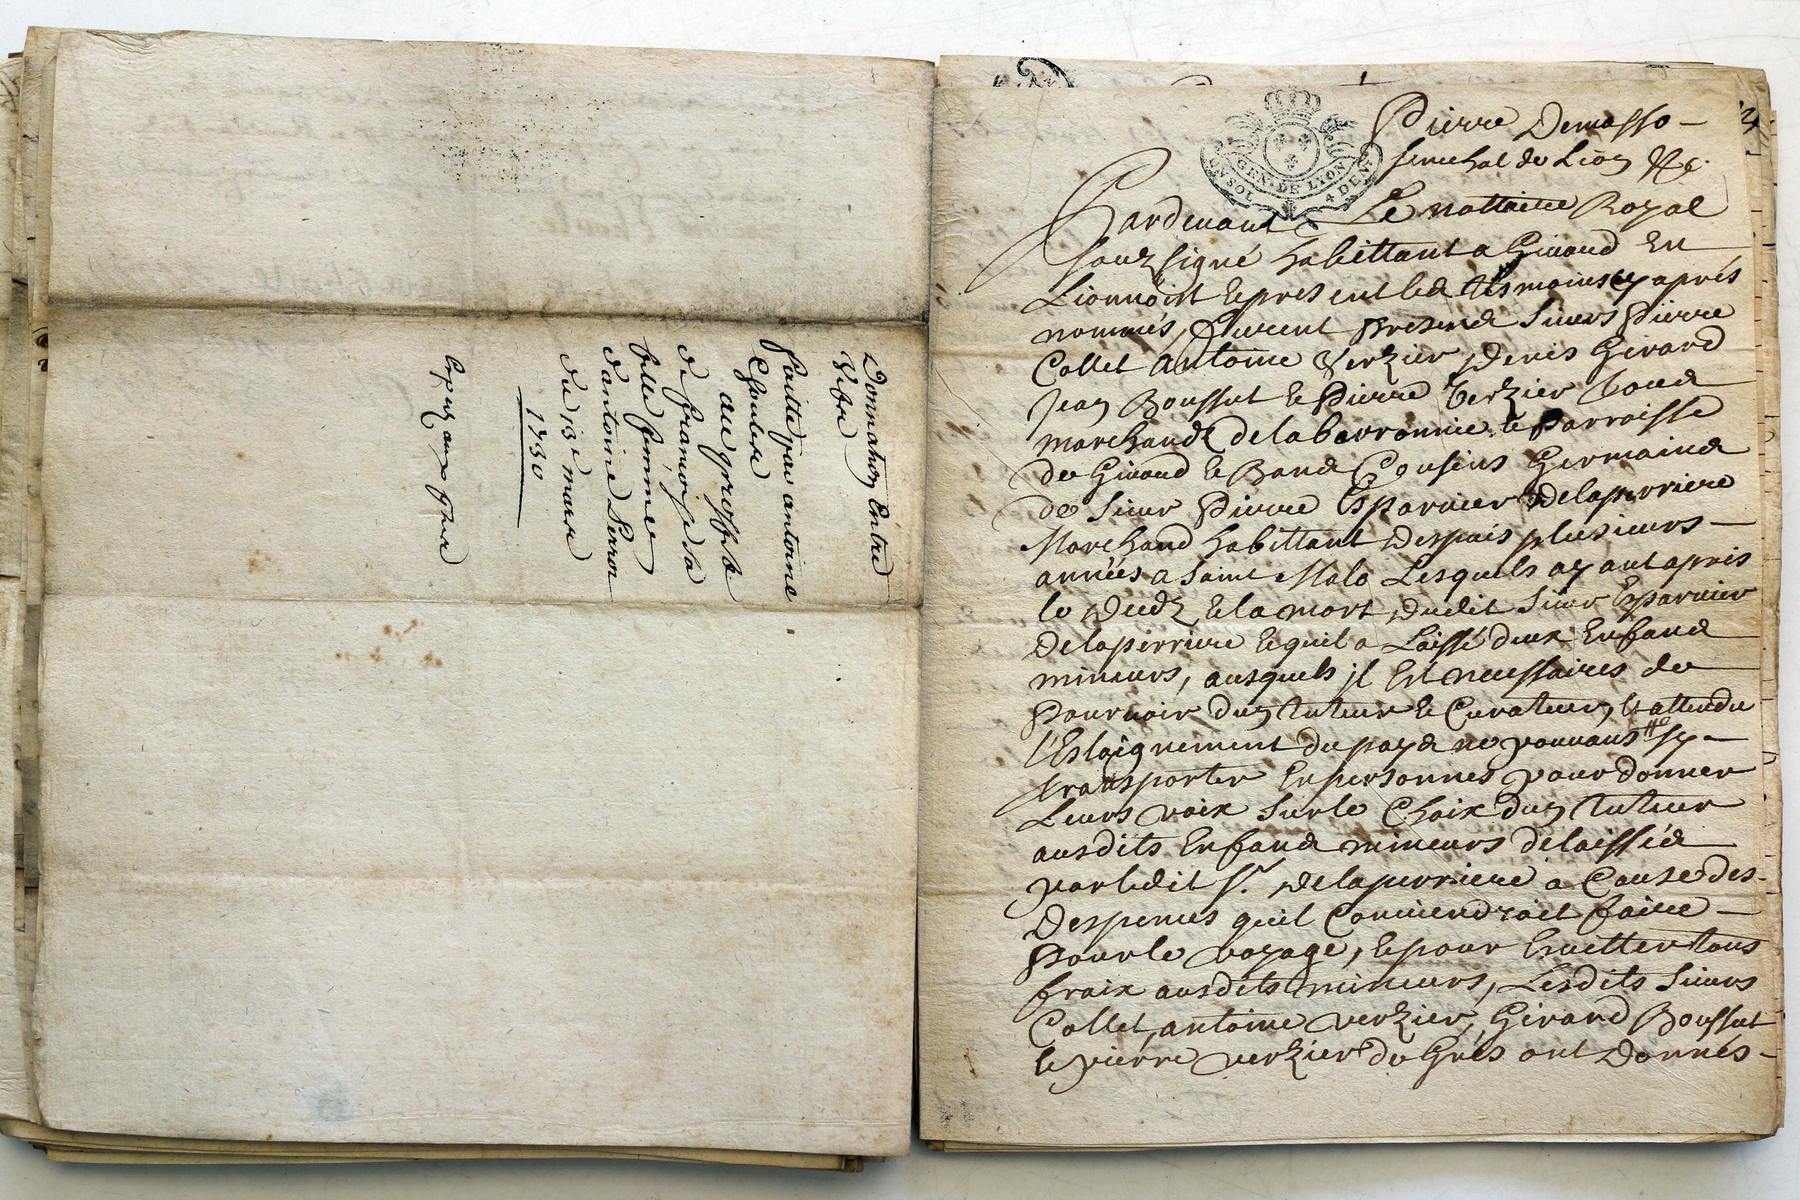 Donnation Entre
Vifs
faitte par antoine
Choulra
au proffit
de françoise sa
fille femme
d'antoine Perron
du 13e mars
1730
GEN. DE LYON
UN SOL 4 DEN
Pierre Demasso
senechal de Lion &c.
2
Pardevant Le nottaire Royal
souzsigné habittant a Givord En
Lionnoist Et present les tesmoins cy aprés
nommés, furent presens Sieurs Pierre
Collet antoine Verzier, Denis Girard
Jean Boussut et Pierre Verzier tous
marchands de la barronnie et Parroisse
de Givord et Bans Cousins Germains
de Sieur Pierre Esparvier Delaperriere
Marchand habittant Despuis plusieurs
années a Saint Malo Lesquels ayant apris
le Deedz et la mort, dudit Sieur Esparvier
Delaperriere et quil a Laissé deux Enfans
mineurs, ausquels jl Est necessaires de
Pourvoir dun tuteur et Curateur, Et attendu
l'Esloignement du pays ne pouvans sy
transporter En personnes pour donner
Leurs voix Sur le Choix dun tuteur
ausdits Enfans mineurs delaissés
par ledit Sr. Delaperriere a Cause des
Despences quil Conviendroit faire
Pour le voyage, et pour Eviter tous
fraix ausdits mineurs, Lesdits Sieurs
Collet, antoine verzier, Girard Boussut
et pierre verzier de Grés ont Donnés